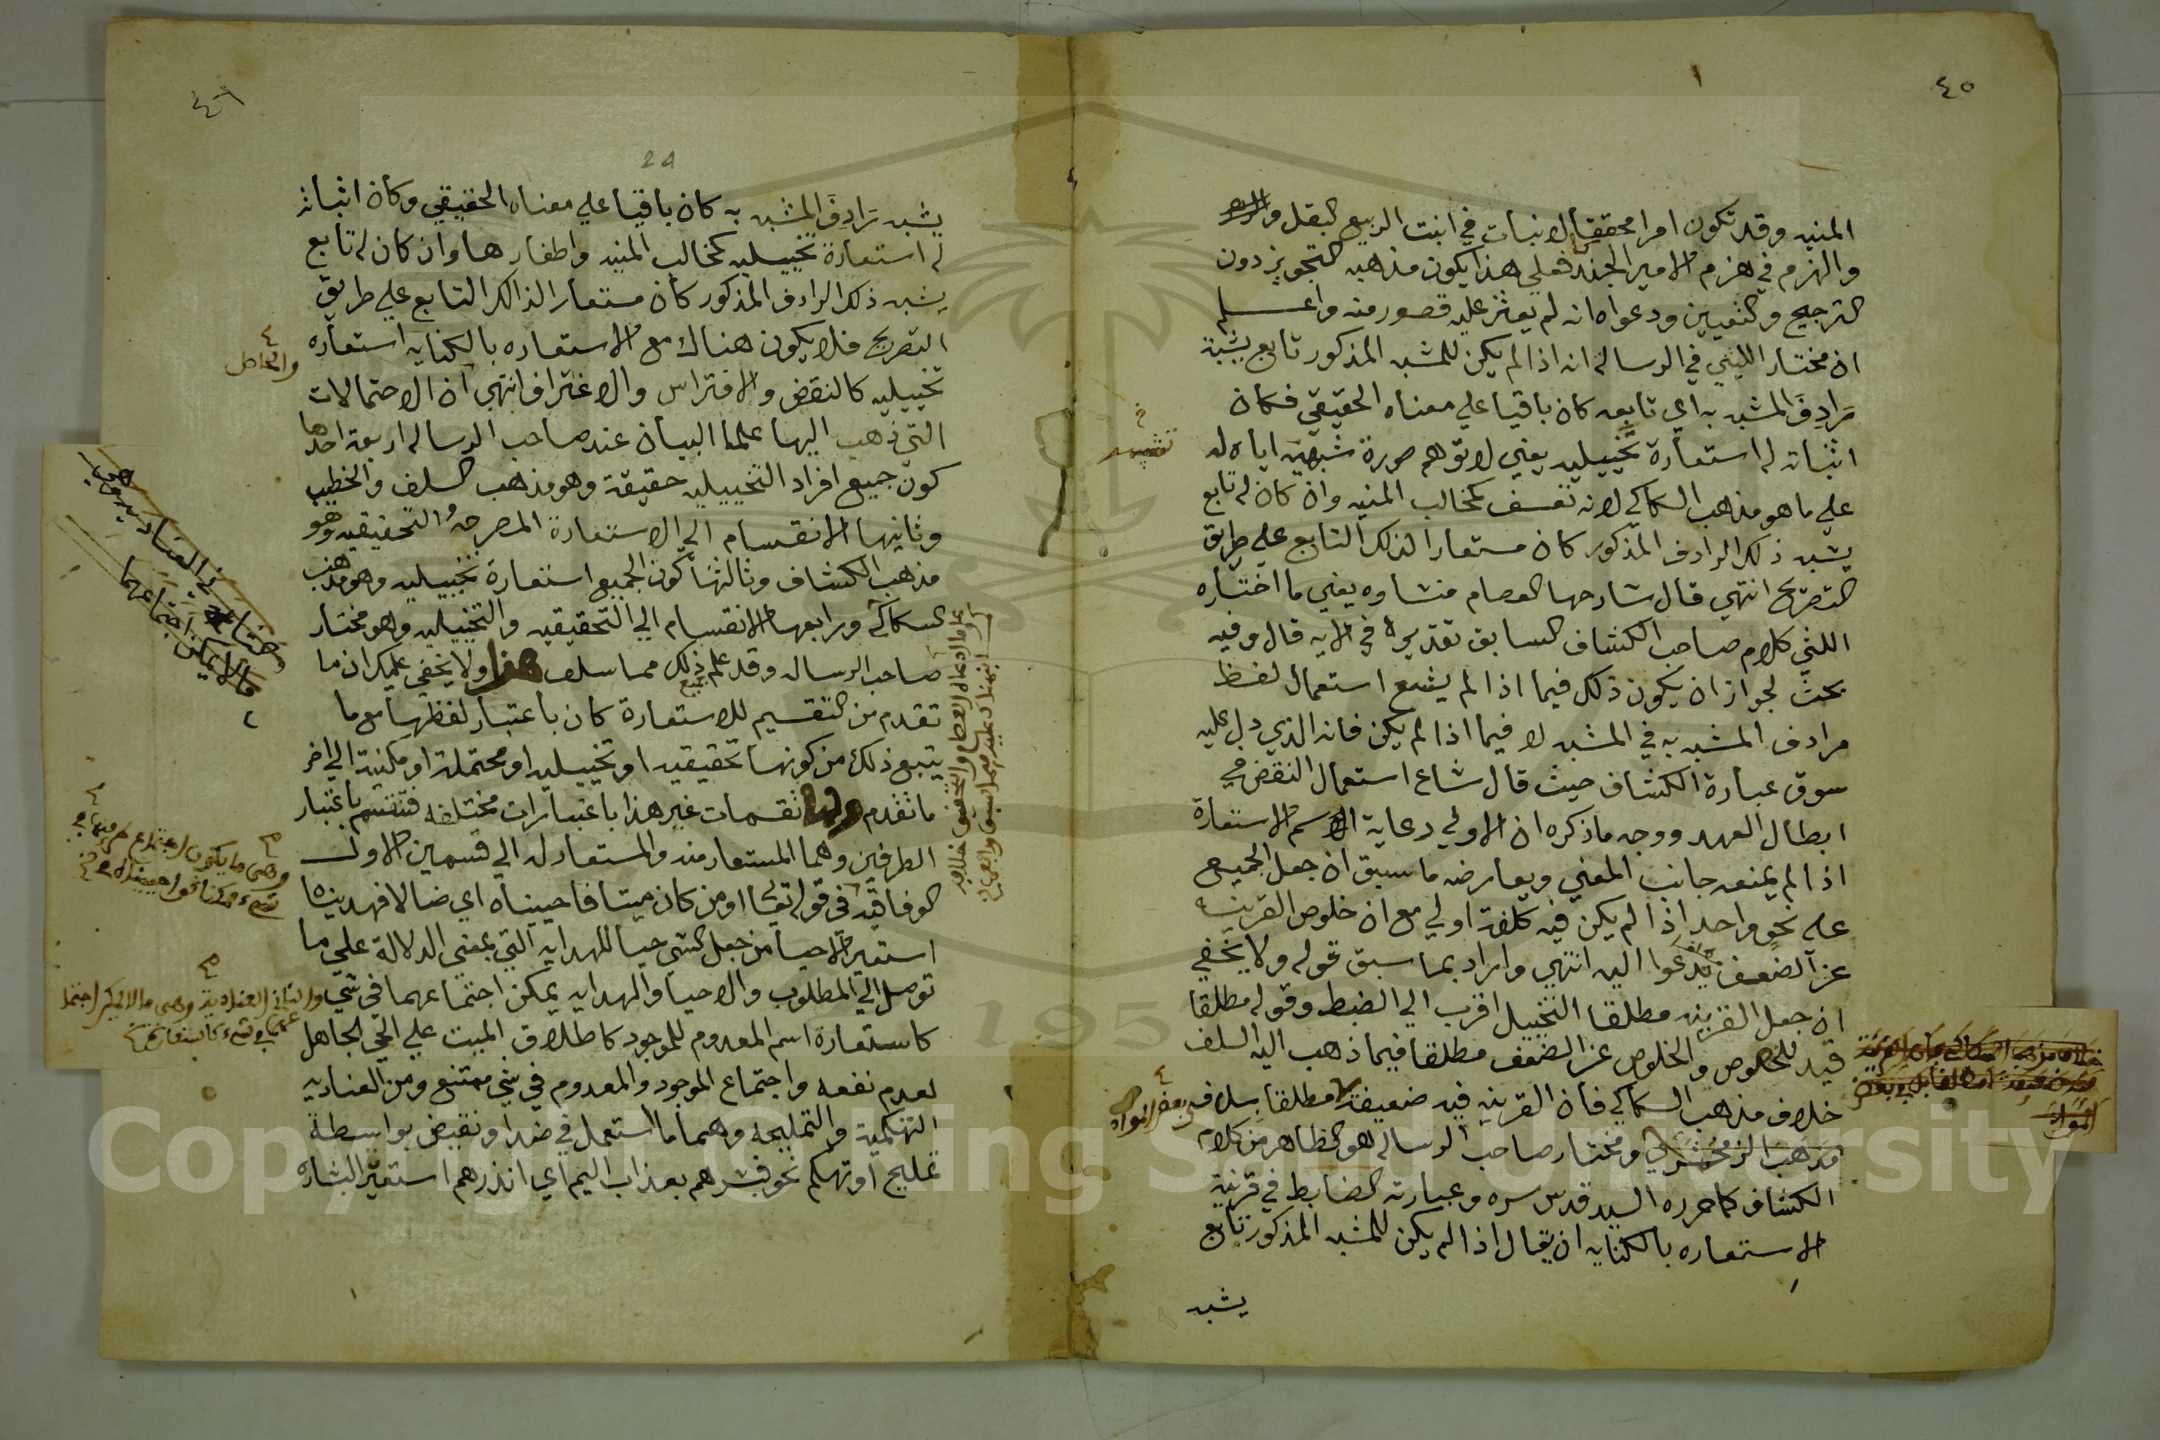 ٤٥
المنيه وقد تكون امرا محققا كالانبات في انبت الربيع البقل
والهزم في هزم الامير الجند فعلي هذا يكون مذهبه التجويز دون
الترجيح والتعيين ودعواه انه لم يعثر عليه قصور منه واعلم
ان مختار الليثي في الرساله انه اذا لم يكن للمشبه المذكور تابع يشبه
رادف المشبه به اي تابعه كان باقيا علي معناه الحقيقي فكان
اثباته له استعارة تخييليه يعني لا توهم صورة شبهيه اياه له
علي ما هو مذهب السكاكي لانه تعسف كمخالب المنيه وان كان له تابع
يشبه ذلك الرادف المذكور كان مستعارا لذلك التابع علي طريق
التصريح انتهي قال شارحها العصام منشاوه يعني ما اختاره
الليثي كلام صاحب الكشاف السابق تقديره في الايه قال وفيه
بحث لجواز ان يكون ذلك فيما اذا لم يشع استعمال لفظ
مرادف المشبه به في المشبه لا فيما اذا لم يكن فانه الذي دل عليه
سوق عبارة الكشاف حيث قال شاع استعمال النقض في
ابطال العهد ووجه ما ذكره ان الاولي رعاية اسم الاستعارة
اذا لم يمنعه جانب المعني ويعارضه ما سبق ان جعل الجميع
علي نحو واحد اذا لم يكن فيه كلفة اولي مع ان خلوص القرينه
عن الضعف يدعوا اليه انتهي واراد بما سبق قوله ولا يخفي
ان جعل القرينه مطلقا التخييل اقرب الي الضبط وقوله مطلقا
قيد للخلوص والخلوص عن الضعف مطلقا فيما ذهب اليه السلف
خلاف مذهب السكاكي فان القرينه فيه ضعيفة مطلقا بخلاف في بعض المواد
مذهب الزمخشري ومختار صاحب الرساله هو الظاهر من كلام
الكشاف كما حرره السيد قدس سره وعبارته الضابط في قرينة
الاستعاره بالكنايه ان يقال اذا لم يكن للمشبه المذكور تابع
يشبه
٤٦
يشبه رادف المشبه به كان باقيا علي معناه الحقيقي وكان اثباته
له استعارة تخييليه كمخالب المنيه واظفارها وان كان له تابع
يشبه ذلك الرادف المذكور كان مستعارا لذلك التابع علي طريق
التصريح فلا يكون هناك مع الاستعاره بالكنايه استعاره
والحاصل
تخييليه كالنقض والافتراس والاغتراف انتهي ان الاحتمالات
التي ذهب اليها علما البيان عند صاحب الرساله اربعة احدها
كون جميع افراد التخييليه حقيقة وهو مذهب السلف والخطيب
وثانيها الانقسام الي الاستعارة المصرحه والتحقيقيه وهو
مذهب الكشاف وثالثها كون الجميع استعارة تخييليه وهو مذهب
السكاكي ورابعها الانقسام الي التحقيقيه والتخييليه وهو مختار
صاحب الرساله وقد علم ذلك مما سلف هذا ولا يخفي عليك ان ما
تقدم من التقسيم للاستعارة كان باعتبار لفظها مع ما
يتبع ذلك من كونها تحقيقيه او تخييليه او محتملة او مكنية الي اخر
ما تقدم ولها تقسيمات غير هذا باعتبارات مختلفه فتنقسم باعتبار
الطرفين وهما المستعار منه والمستعار له الي قسمين الاول
الوفاقيه في قوله تعالي اومن كان ميتا فاحييناه اي ضالا فهديناه
استعير الاحيا من جعل الشي حيا للهدايه التي بمعني الدلالة علي ما
توصل الي المطلوب والاحيا والهدايه يمكن اجتماعهما في شي
والثاني العناديه وهي ما لا يمكن
كاستعارة اسم المعدوم للموجود كاطلاق الميت علي الحي الجاهل
لعدم نفعه واجتماع الموجود والمعدوم في شي ممتنع ومن العناديه
التهكمية والتمليحيه وهما ما استعمل في ضد او نقيض بواسطة
تمليح او تهكم نحو فبشرهم بعذاب اليم اي انذرهم استعير البشاره
Copyright © King Saud University
195